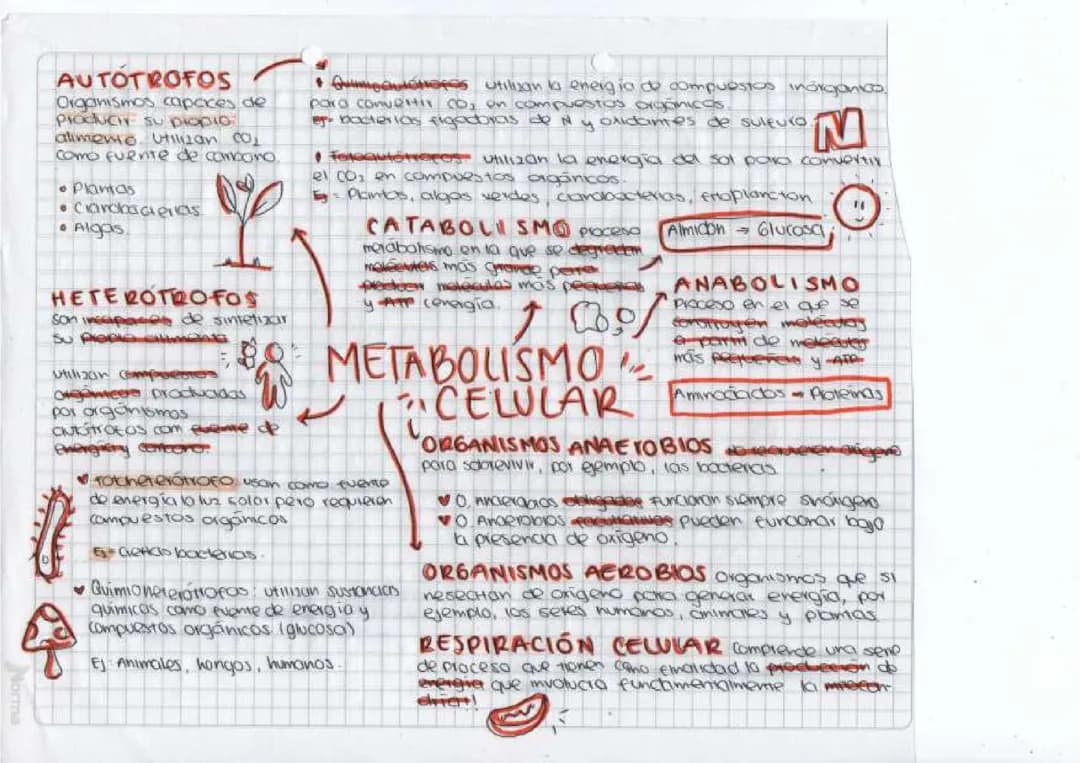 AUTÓTROFOS
Organismos capaces de
producir su propio
alimento. Utilizan CO2
como fuente de carbono.
• Plantas
• Cianobacterias
• Algas.
• Quimioautótrofos utilizan la energía de compuestos inórganico.
para convertir CO2 en compuestos orgánicos.
Ej- bacterias figadoras de N y oxidantes de sulfuro
N
• Fotoautótrofos utilizan la energía del sol para convertir
el CO2 en compuestos orgánicos.
Ej= Plantas, algas verdes, cianobacterias, fitoplancton
CATABOLISMO proceso
metabolismo en la que se degradan
moléculas más grande para
producir moléculas más pequeñas
y ATP (energía.
Almidón → Glucosa
ANABOLISMO
Proceso en el que se
construyen moléculas
a partir de moléculas
más pequeñas y ATP
Aminoácidos → Proteínas
HETERÓTROFOS
son incapaces de sintetizar
su propio alimento
utilizan compuestos
orgánicos producidos
por organismos
autótrofos com fuente de
energía y carbono.
♥ Fotoheterótrofo usan como fuente
de energía la luz solar pero requieren
compuestos orgánicos
Ej= bacterias.
♥ Quimioheterótrofos: utilizan sustancias
químicas como fuente de energía y
compuestos orgánicos (glucosa)
Ej: Animales, hongos, humanos.
METABOLISMO
CELULAR
ORGANISMOS ANAEROBIOS no requieren oxígeno
para sobrevivir, por ejemplo, las bacterias
♥ O. Anaerobios obligados funcionan siempre sin oxígeno
♥ O. Anaerobios facultativos pueden funcionar bajo
la presencia de oxígeno.
ORGANISMOS AEROBIOS organismos que si
nesecitan de oxígeno para generar energía, por
ejemplo, los seres humanos, animales y plantas.
RESPIRACIÓN CELULAR comprende una serie
de proceso que tienen como finalidad la producción de
energía que involucra fundamentalmente la mitocon-
dria!
Norma